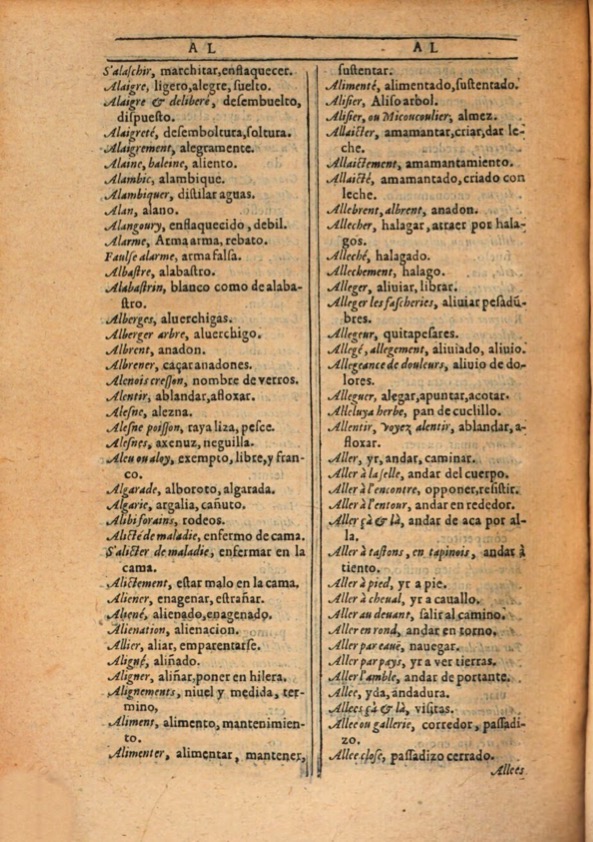 AL
S'alaschir, marchitar, enflaquecer.
Alaigre, ligero, alegre, suelto.
Alaigre & deliberé, desembuelto,
dispuesto.
Alaigreté, desemboltura, soltura.
Alaigrement, alegramente.
Alaine, haleine, aliento.
Alambic, alambique.
Alambiquer, distilar aguas.
Alan, alano.
Alangoury, enflaquecido, debil.
Alarme, Arma arma, rebato.
Faulse alarme, arma falsa.
Albastre, alabastro.
Alabastrin, blanco como de alaba-
stro.
Alberges, aluerchigas.
Alberger arbre, aluerchigo.
Albrent, anadon.
Albrener, caçar anadones.
Alenois cresson, nombre de verros.
Alentir, ablandar, afloxar.
Alesne, alezna.
Alesne poisson, raya liza, pesce.
Alesnes, axenuz, neguilla.
Aleu ou aloy, exempto, libre, y fran-
co.
Algarade, alboroto, algarada.
Algarie, argalia, cañuto.
Alibi forains, rodeos.
Alicté de maladie, enfermo de cama.
S'alicter de maladie, enfermar en la
cama.
Alictement, estar malo en la cama.
Aliener, enagenar, estrañar.
Aliené, alienado, enagenado.
Alienation, alienacion.
Allier, aliar, emparentarse.
Aligné, aliñado.
Aligner, aliñar, poner en hilera.
Alignements, niuel y medida, ter-
mino,
Aliment, alimento, mantenimien-
to.
Alimenter, alimentar, mantener,
AL
sustentar.
Alimenté, alimentado, sustentado.
Alisier, Aliso arbol.
Alisier, ou Micoucoulier, almez.
Allaicter, amamantar, criar, dar le-
che.
Allaictement, amamantamiento.
Allaicté, amamantado, criado con
leche.
Allebrent, albrent, anadon.
Allecher, halagar, atraer por hala-
gos.
Alleché, halagado.
Allechement, halago.
Alleger, aliuiar, librar.
Alleger les fascheries, aliuiar pesadũ-
bres.
Allegeur, quitapesares.
Allegé, allegement, aliuiado, aliuio.
Allegeance de douleurs, aliuio de do-
lores.
Alleguer, alegar, apuntar, acotar.
Alleluya herbe, pan de cuclillo.
Allentir, voyez alentir, ablandar, a-
floxar.
Aller, yr, andar, caminar.
Aller à la selle, andar del cuerpo.
Aller à l'encontre, opponer, resistir.
Aller à l'entour, andar en rededor.
Aller çà & là, andar de aca por al-
la.
Aller à tastons, en tapinois, andar à
tiento.
Aller à pied, yr a pie.
Aller à cheual, yr a cauallo.
Aller au deuant, salir al camino.
Aller en rond, andar en torno.
Aller par eauë, nauegar.
Aller par pays, yr a ver tierras.
Aller l'amble, andar de portante.
Allee, yda, andadura.
Allees çà & là, visitas.
Allee ou gallerie, corredor, passadi-
zo.
Allee close, passadizo cerrado.
Allees